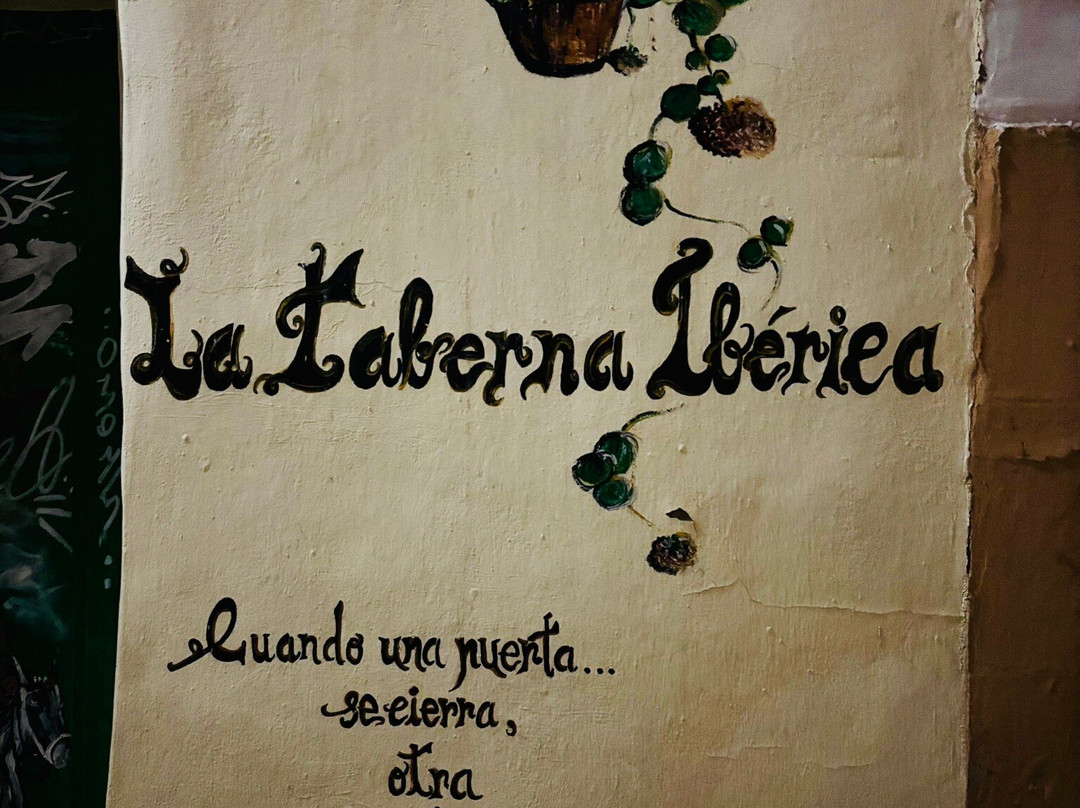 La Taberna Ibérica
Cuando una puerta...
se cierra,
otra